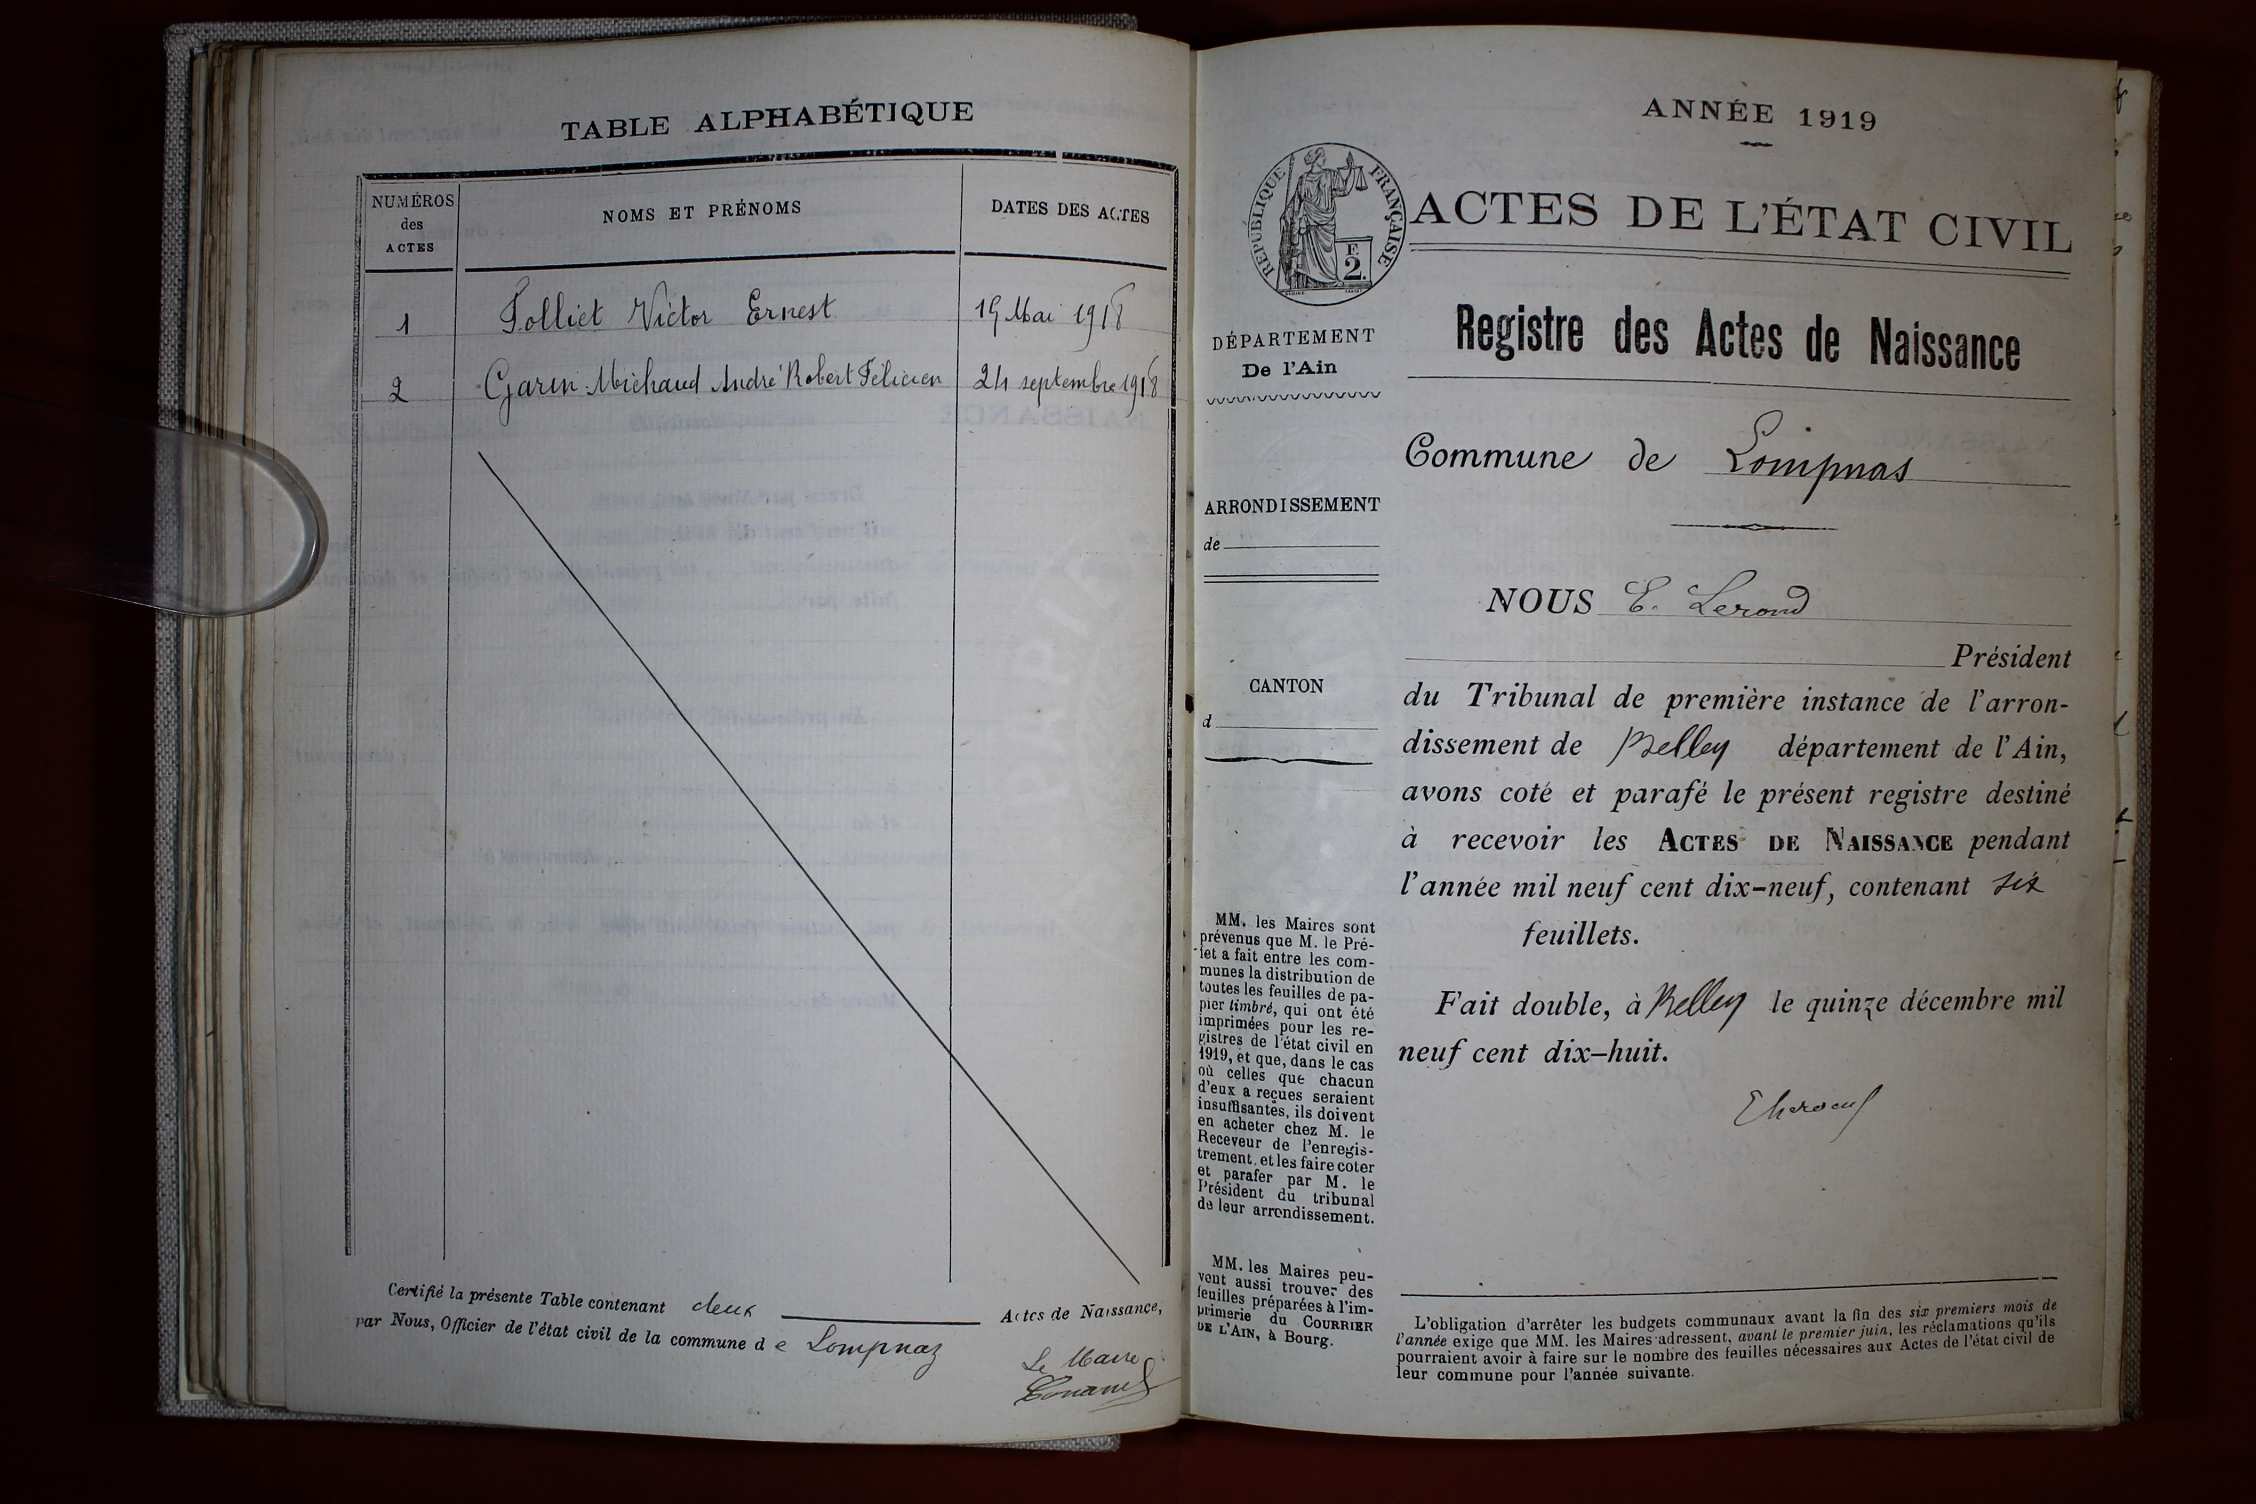 TABLE ALPHABÉTIQUE
NUMÉROS
des
ACTES
NOMS ET PRÉNOMS
DATES DES ACTES
1 Folliet Victor Ernest 15 Mai 1918
2 Garin-Michaud André Robert Félicien 24 septembre 1918
Certifié la présente Table contenant deux Actes de Naissance,
par Nous, Officier de l'état civil de la commune de Lompnaz
Le Maire
ANNÉE 1919
RÉPUBLIQUE FRANÇAISE
F
2.
ACTES DE L'ÉTAT CIVIL
DÉPARTEMENT
De l'Ain
ARRONDISSEMENT
de
CANTON
d
MM. les Maires sont
prévenus que M. le Pré-
fet a fait entre les com-
munes la distribution de
toutes les feuilles de pa-
pier timbré, qui ont été
imprimées pour les re-
gistres de l'état civil en
1919, et que, dans le cas
où celles que chacun
d'eux a reçues seraient
insuffisantes, ils doivent
en acheter chez M. le
Receveur de l'enregis-
trement, et les faire coter
et parafer par M. le
Président du tribunal
de leur arrondissement.
MM. les Maires peu-
vent aussi trouver des
feuilles préparées à l'im-
primerie du COURRIER
DE L'AIN, à Bourg.
Registre des Actes de Naissance
Commune de Lompnas
NOUS E. Lerond
Président
du Tribunal de première instance de l'arron-
dissement de Belley département de l'Ain,
avons coté et parafé le présent registre destiné
à recevoir les ACTES DE NAISSANCE pendant
l'année mil neuf cent dix-neuf, contenant six
feuillets.
Fait double, à Belley le quinze décembre mil
neuf cent dix-huit.
L'obligation d'arrêter les budgets communaux avant la fin des six premiers mois de
l'année exige que MM. les Maires adressent, avant le premier juin, les réclamations qu'ils
pourraient avoir à faire sur le nombre des feuilles nécessaires aux Actes de l'état civil de
leur commune pour l'année suivante.